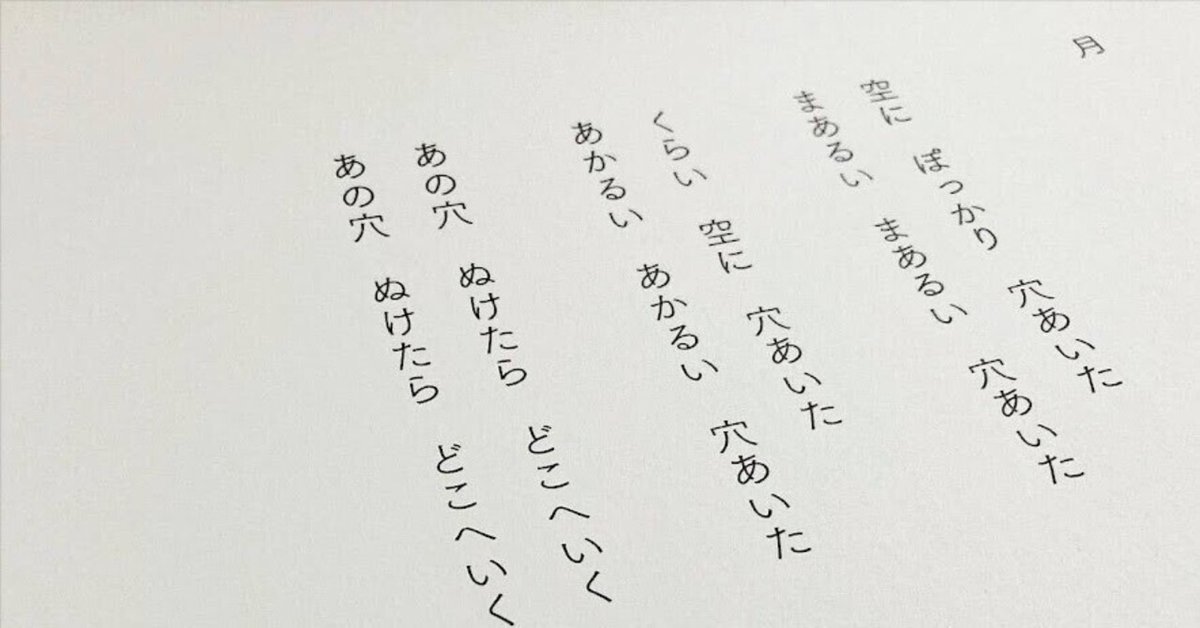 月
空に　ぽっかり　穴あいた
まあるい　まあるい　穴あいた
くらい　空に　穴あいた
あかるい　あかるい　穴あいた
あの穴　ぬけたら　どこへいく
あの穴　ぬけたら　どこへいく